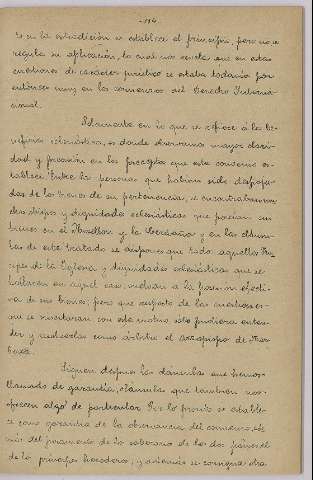 114
en la extradición se establece el principio, pero no se
regula su aplicación, lo cual nos revela que en estas
cuestiones de carácter jurídico se estaba todavía por
entonces muy en los comienzos del Derecho Interna-
cional.
Solamente en lo que se refiere a los be-
neficios eclesiásticos, es donde observamos mayor clari-
dad y precisión en los preceptos que este convenio es-
tablece. Entre las personas que habían sido despoja-
das de los bienes de su pertenencia, se encontraban mu-
chos obispos y dignidades eclesiásticas que poseían sus
bienes en el Rosellón y la Cerdaña y en las cláusu-
las de este tratado se dispone que todos aquellos Prín-
cipes de la Iglesia y dignidades eclesiásticas que se
hallaren en aquel caso, vuelvan a la posesión efecti-
va de sus bienes; pero que respecto de las cuestiones
que se suscitaran con este motivo sólo pudiera enten-
der y resolverlas como árbitro el arzobispo de Nar-
bona.
Siguen después las cláusulas que hemos
llamado de garantía, cláusulas que también nos
ofrecen algo de particular. Por lo pronto se estable-
ce como garantía de la observancia del convenio, ade-
más del juramento de los soberanos de los dos países, el
de los príncipes herederos; y además se consigna otra